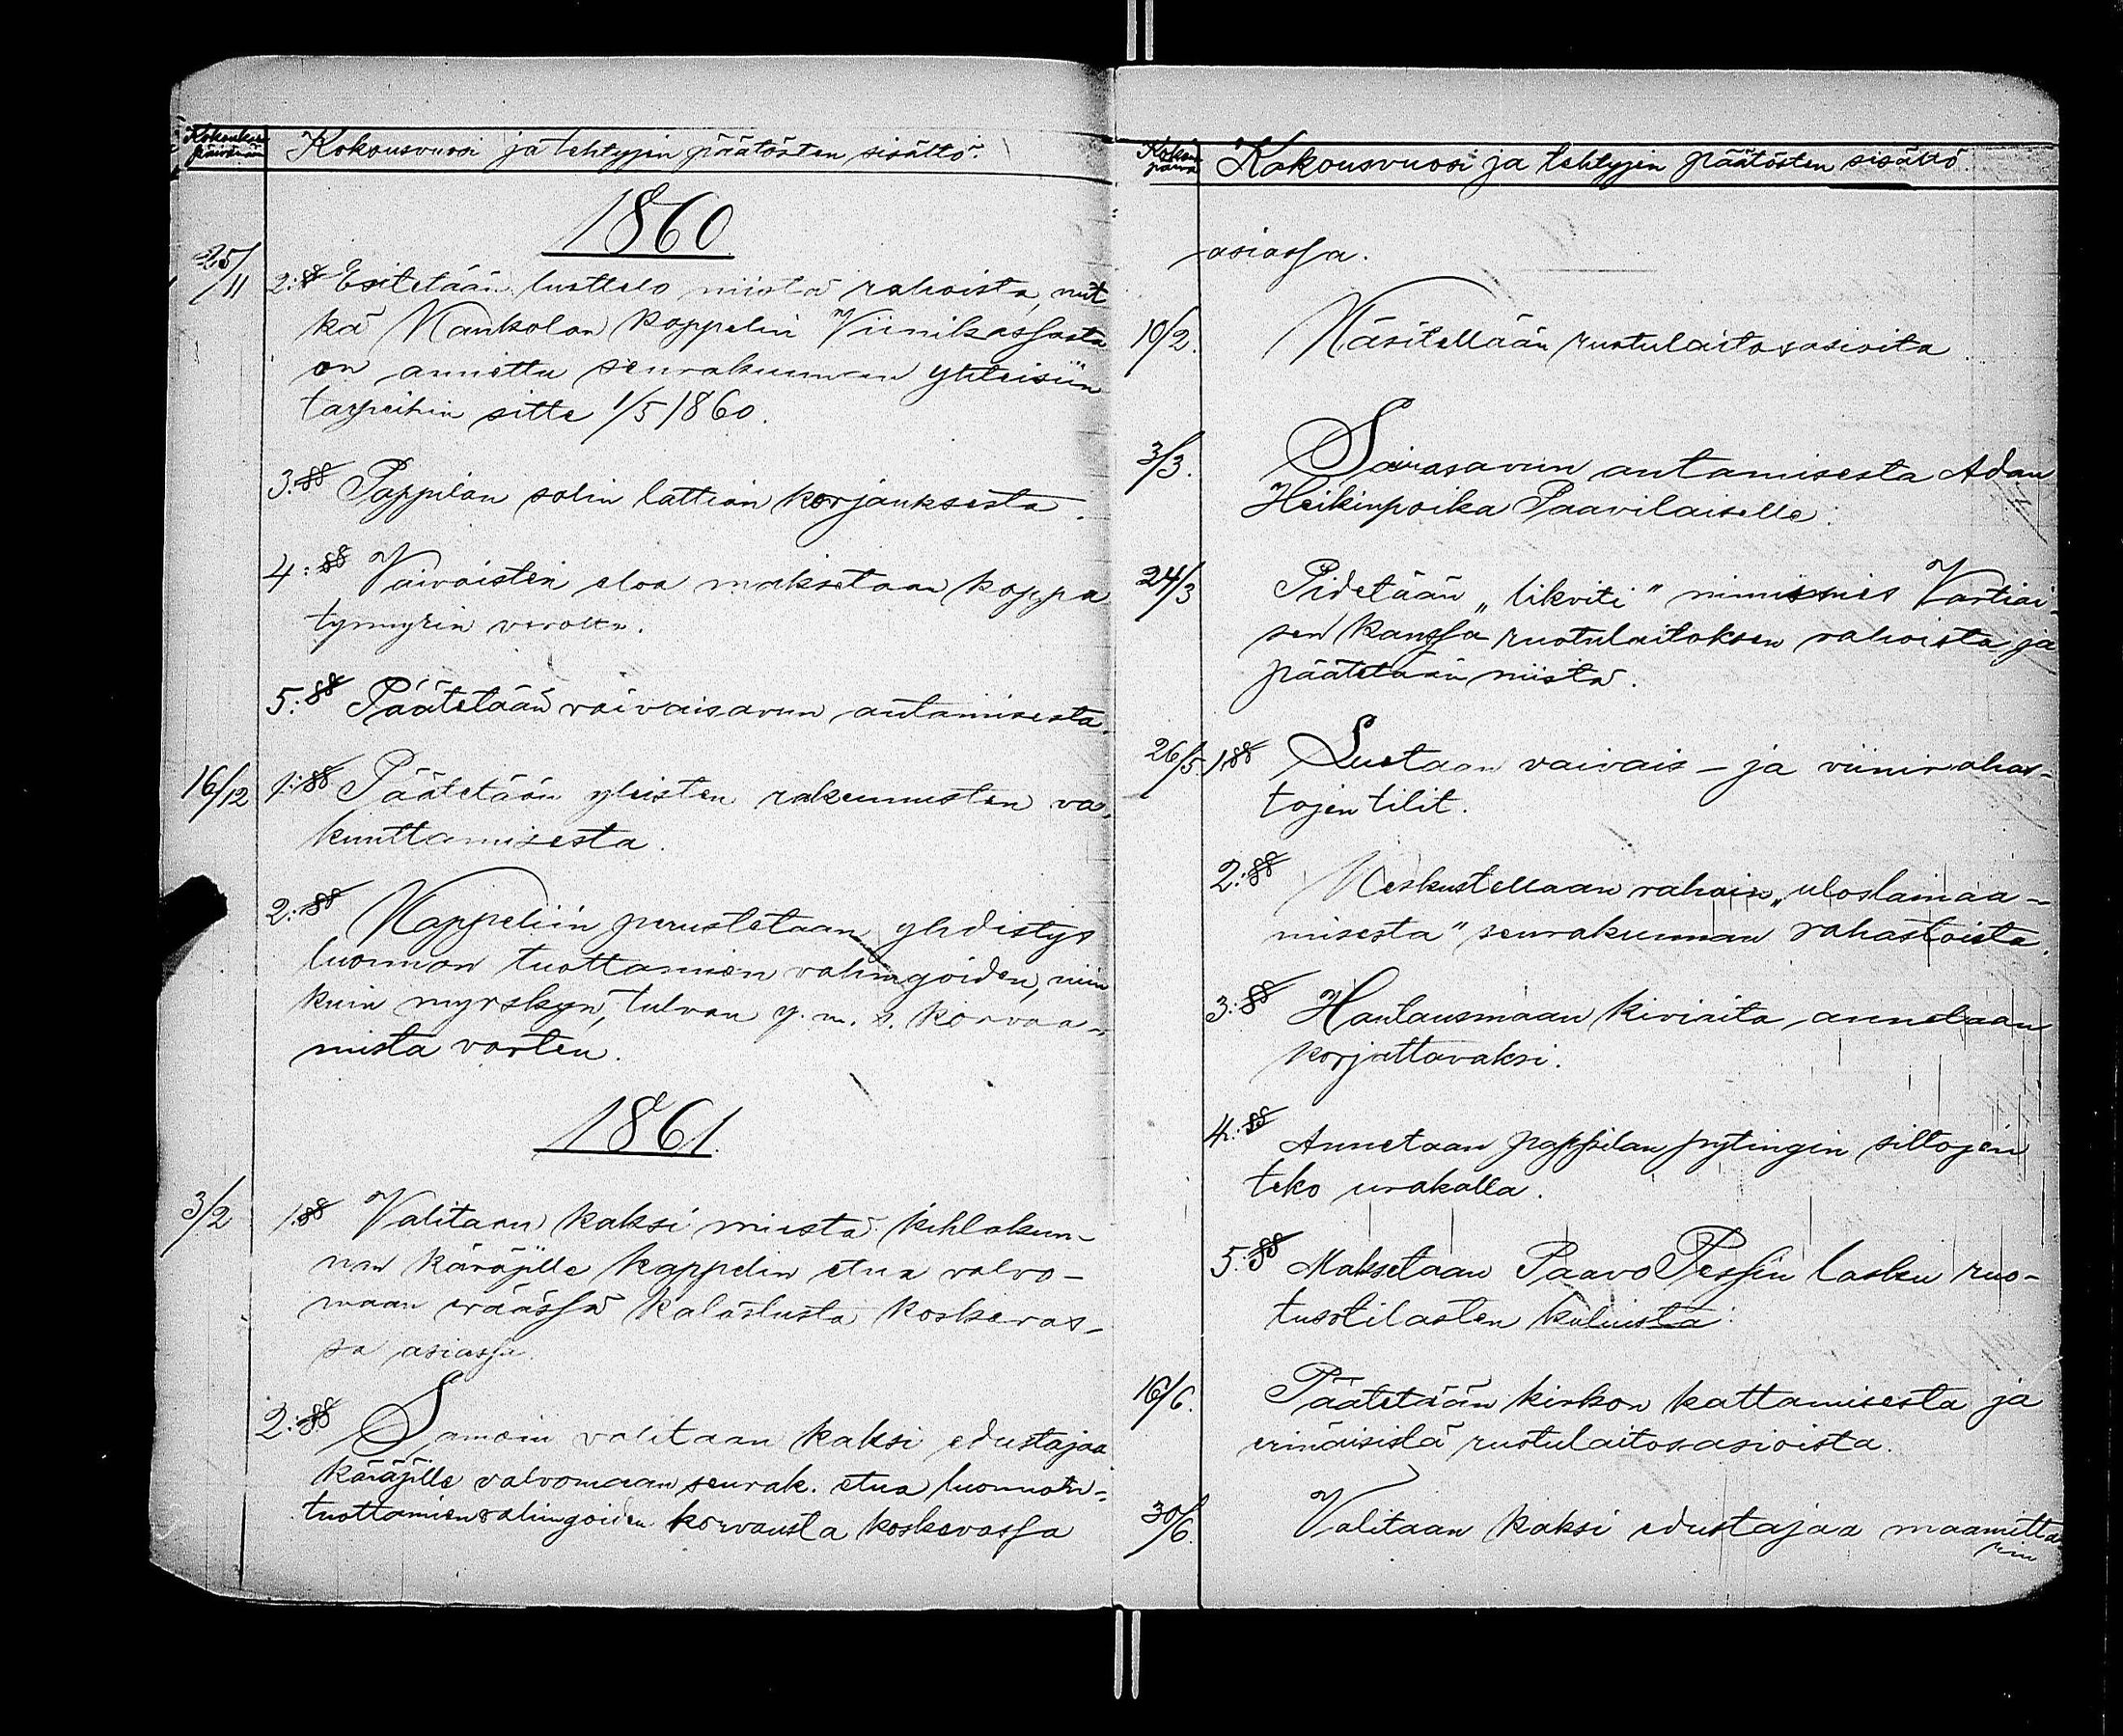 Kokouksen päivämäärä
Kokousvuosi ja tehtyjen päätösten sisältö.
1860
25/11 2:§ Esitetään luettelo niistä rahoista, mit
kä Kankolan kappelin Viinikassasta
on annettu seurakunnan yhteisiin
tarpeihin sitte 1/5 1860.
3:§§ Pappilan salin lattian korjauksesta.
4:§§ Vaivaisten eloa maksetaan kappa
tynnyrin verolta.
5:§§ Päätetään vaivaisavun antamisesta.
16/12 1:§§ Päätetään yleisten rakennusten va-
kuuttamisesta.
2:§§ Kappeliin perustetaan yhdistys
luonnon tuottamien vahingoiden, niin
kuin myrskyn, tulvan y. m. s. korvaa-
mista varten.
1861.
3/2 1:§§ Valitaan kaksi miestä kihlakun-
nan käräjille kappelin etua valvo-
maan eräässä kalastusta koskevas-
sa asiassa.
2:§§ Samoin valitaan kaksi edustajaa
käräjille valvomaan seurak. etua luonnon-
tuottamien vahingoiden korvausta koskevassa
Kokousvuosi ja tehtyjen päätösten sisältö.
asiassa.
10/2. Käsitellään ruotulaitosasioita
3/3. Sairasavun antamisesta Adam
Heikinpoika Paavilaiselle.
24/3 Pidetään „likviti" nimismies Vartiai-
sen kanssa ruotulaitoksen rahoista ja
päätetään niistä.
26/5. 1:§§ Luetaan vaivais- ja viinirahas-
tojen tilit.
2:§§ Keskustellaan rahain „uloslainaa-
misesta" seurakunnan rahastoista.
3:§§ Hautausmaan kiviaita annetaan
korjattavaksi.
4:§§ Annetaan pappilan pytingin siltojen
teko urakalla.
5:§§ Maksetaan Paavo Pessin lasku ruo-
tusotilasten kuluista.
16/6. Päätetään kirkon kattamisesta ja
erinäisistä ruotulaitosasioista.
30/6. Valitaan kaksi edustajaa maamitta
rin